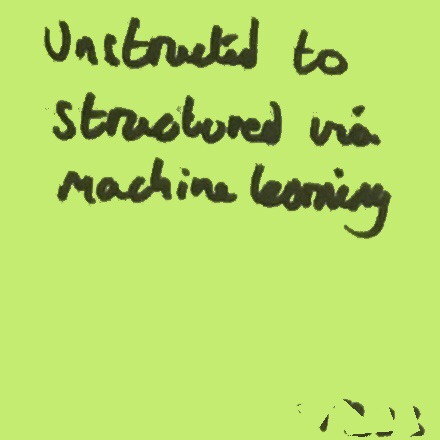 Unstructed to
structured via
machine learning